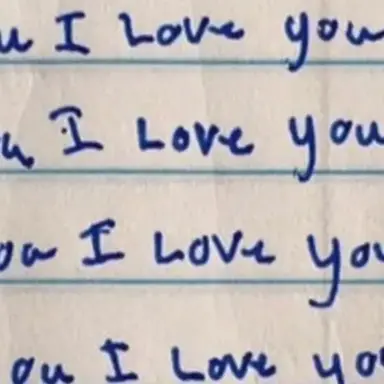 u I Love you
u I Love you
ou I Love you
ou I Love yo